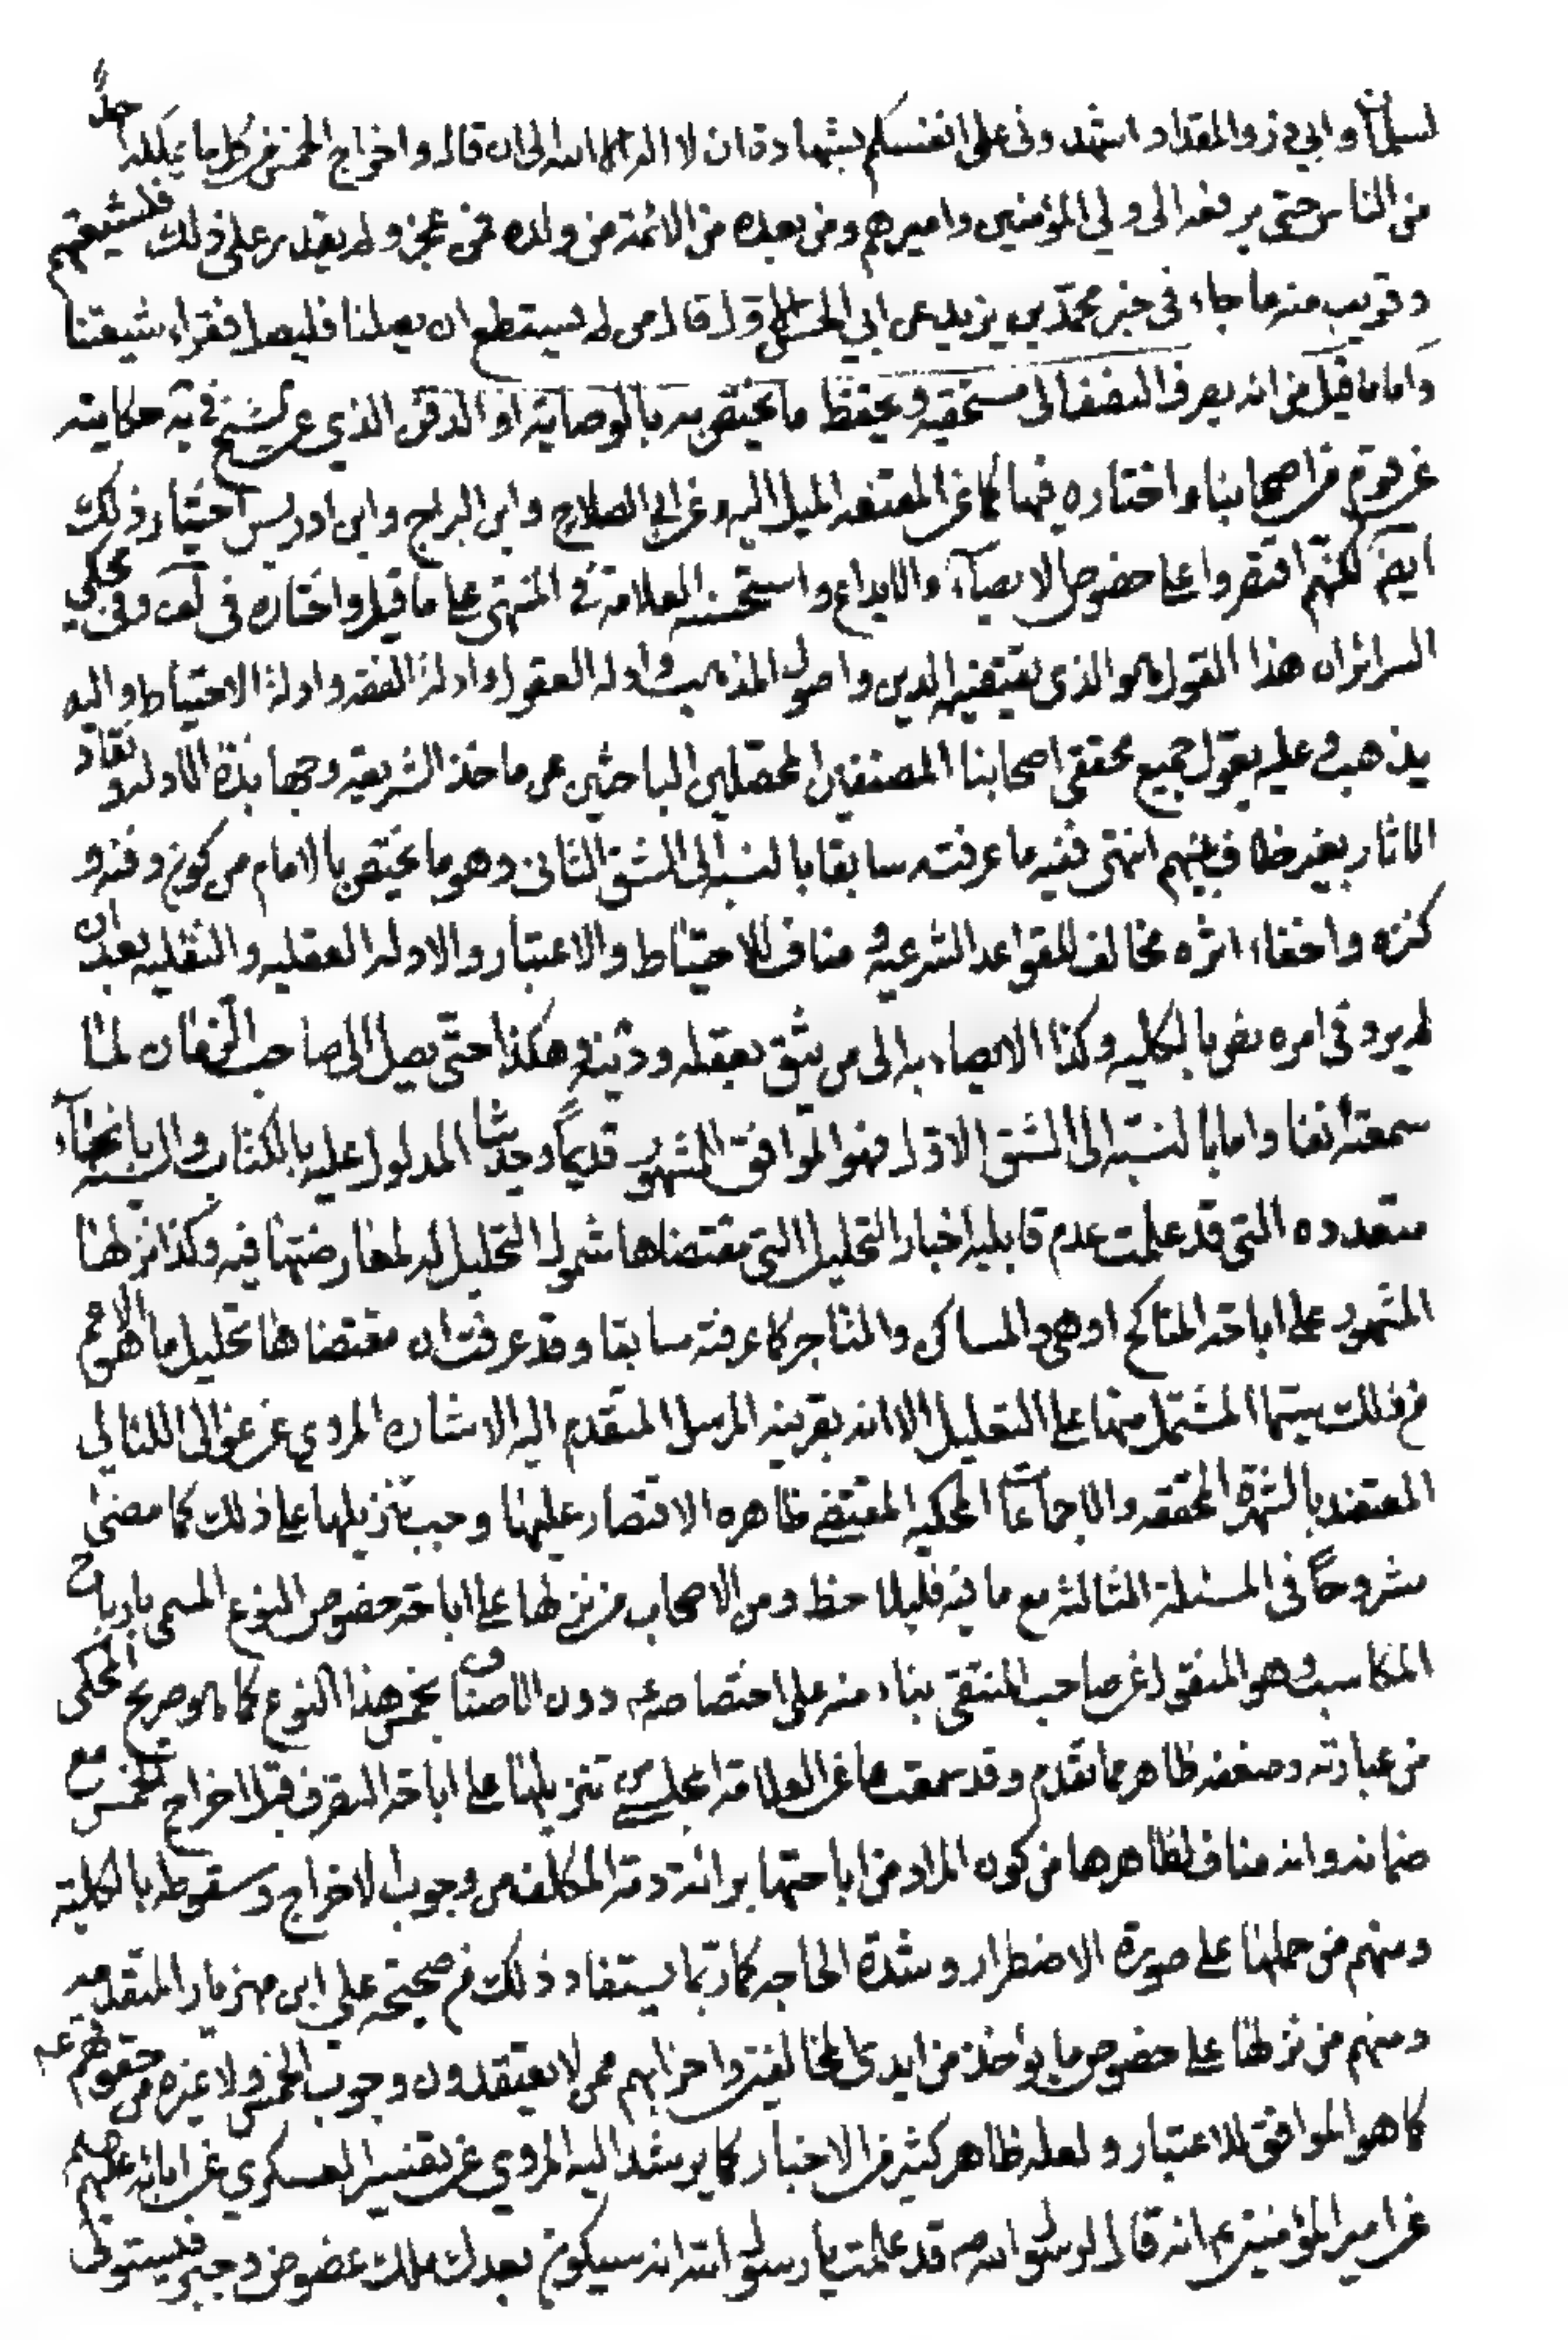 لسلمان وابي ذر والمقداد اشهدوني على انفسكم بشهادة ان لا اله الا الله الى ان قال واخراج الخمس من كل ما يملكه احد
من الناس حتى يرفعه الى ولي المؤمنين واميرهم ومن بعده من الائمة من ولده فمن عجز ولم يقدر على ذلك
وقريب منه ما جاء في خبر محمد بن يزيد عن ابي الحسن الاول قال من لم يستطع ان يصلنا فليصل فقراء شيعتنا
واما ما قيل من انه يصرف النصف الى مستحقيه ويحفظ ما يختص به بالوصاية او الدفن الذي عن الشيخ في حكايته
عن قوم من اصحابنا واختاره فيها كما عن المقنعه الميل اليه وعن ابي الصلاح وابن البراج وابن ادريس اختيار ذلك
ايضا لكنهم اقتصروا على خصوص الايصاء والايداع واستحسنه العلامة في المنتهى على ما قيل واختاره في لف وفي محكي
السرائر ان هذا القول هو الذي يقتضيه الدين واصول المذهب وادلة العقول وادلة الفقه وادلة الاحتياط واليه
يذهب وعليه يعول جميع محققي اصحابنا المصنفين المحصلين الباحثين عن ماخذ الشريعه وجهابذة الادله ونقاد
الاثار بغير خلاف بينهم انتهى ففيه ما عرفته سابقا بالنسبه الى الشق الثاني وهو ما يختص بالامام من كون دفنه و
كنزه واخفاء اثره مخالف للقواعد الشرعية مناف للاحتياط والاعتبار والادله العقليه والنقليه بعد ان
لم يرد في امره نص بالكليه وكذا الايصاء به الى من يثق بعقله ودينه وهكذا حتى يصل الى صاحب الزمان لما
سمعته انفا واما بالنسبه الى الشق الاول فهو الموافق للمشهور قديما وحديثا المدلول عليه بالكتاب والسنه بانحاء
متعدده التي قد علمت عدم قابليه اخبار التحليل التي مقتضاها شمول التحليل له لمعارضتها فيه وكذا نزلها
المشهور على اباحة المناكح او هي والمساكن والمتاجر كما عرفته سابقا وقد عرفت ان مقتضاها تحليل ما هو الاعم
من ذلك سيما المشتمل منها على التعليل الا انه بقرينه المرسل المتقدم اليه الاشاره المروي عن عوالي اللئالي
المعتضد بالشهرة المحققه والاجماعات المحكيه المقتضي ظاهره الاقتصار عليها وجب تنزيلها على ذلك كما مضى
مشروحا في المسئلة الثالثه مع ما فيه فليلاحظ ومن الاصحاب من نزلها على اباحة خصوص النوع المسمى بارباح
المكاسب وهو المنقول عن صاحب المنتقى بناء منه على اختصاصه دون الاصناف بخمس هذا النوع كما هو صريح المحكي
من عبارته وضعفه ظاهر مما تقدم وقد سمعت ما عن العلامة المجلسي من تنزيلها على اباحة التصرف قبل اخراج الخمس مع
ضمانه وانه مناف لظاهرها من كون المراد من اباحتها برائة ذمة المكلف من وجوب الاخراج وسقوطه بالكلية
ومنهم من حملها على صورة الاضطرار وشدة الحاجه كما ربما يستفاد ذلك من صحيحة علي ابن مهزيار المتقدمه
ومنهم من نزلها على خصوص ما يؤخذ من ايدي المخالفين واحزابهم ممن لا يعتقدون وجوب الخمس ولا غيره من حقوقهم
كما هو الموافق للاعتبار ولعله ظاهر كثير من الاخبار كما يرشد اليه المروي عن تفسير العسكري عن ابائه عليهم
عن امير المؤمنين ع انه قال لرسول الله ص قد علمت يا رسول الله انه سيكون بعدك ملك عضوض وجبر فيستولى